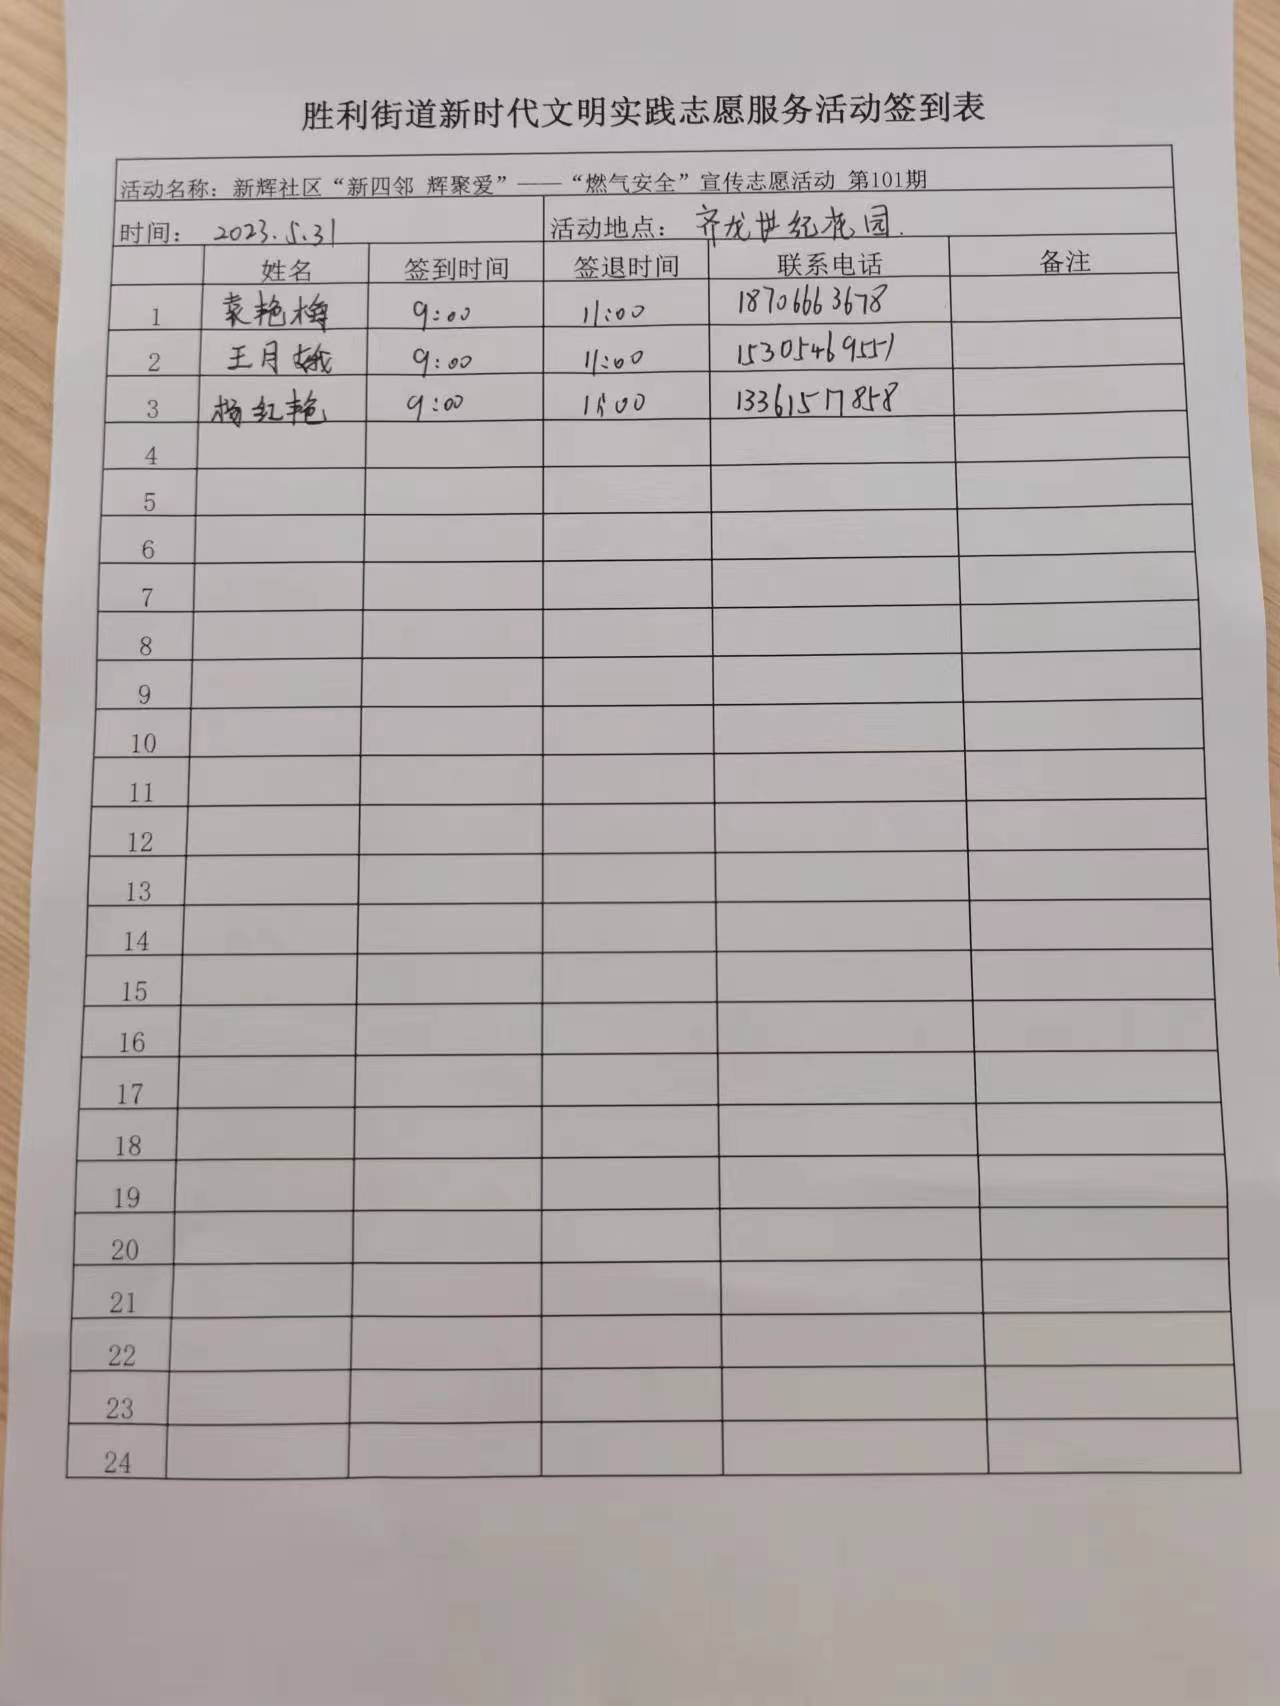 胜利街道新时代文明实践志愿服务活动签到表
活动名称：新辉社区“新四邻 辉聚爱”——“燃气安全”宣传志愿活动 第101期
时间： 2023.5.31 活动地点： 齐龙世纪花园.
姓名 签到时间 签退时间 联系电话 备注
1 袁艳梅 9:00 11:00 18706663678
2 王月娥 9:00 11:00 15305469551
3 杨红艳 9:00 11:00 13361517858
4
5
6
7
8
9
10
11
12
13
14
15
16
17
18
19
20
21
22
23
24